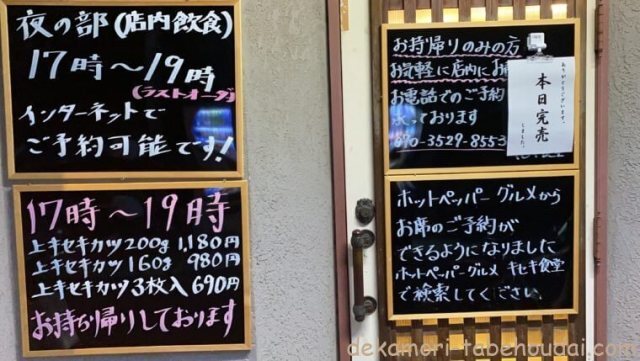 夜の部(店内飲食)
17時～19時
(ラストオーダ
インターネットで
ご予約可能です!
17時～19時
上キセキカツ200g 1,180円
上キセキカツ160g 980円
上キセキカツ3枚入 690円
お持ち帰りしております
お持帰りのみの方
お気軽に店内にお
お電話でのご予約
承っております
090-3529-8553
ありがとうございます。
本日完売
しました。
ホットペッパーグルメから
お席のご予約が
できるようになりました
ホットペッパーグルメ キセキ食堂
で検索してください。
dekamori-tabehougai.com